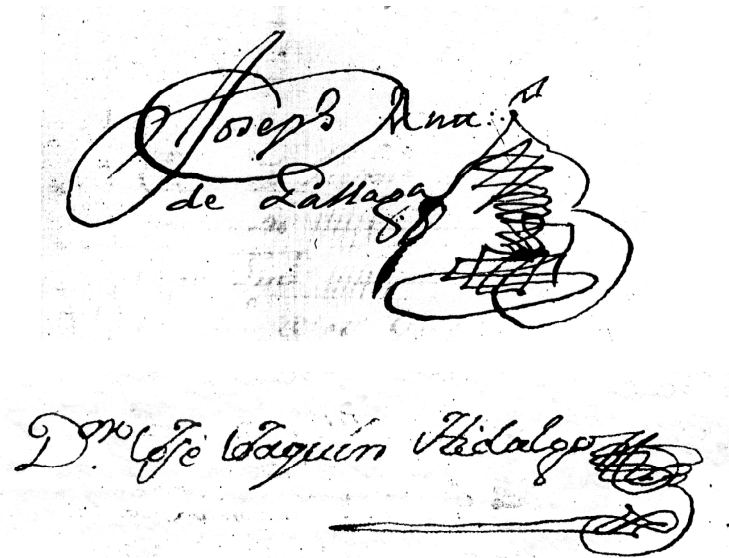 Joseph Ana
de Gallaga
Dro. José Joaquín Hidalgo